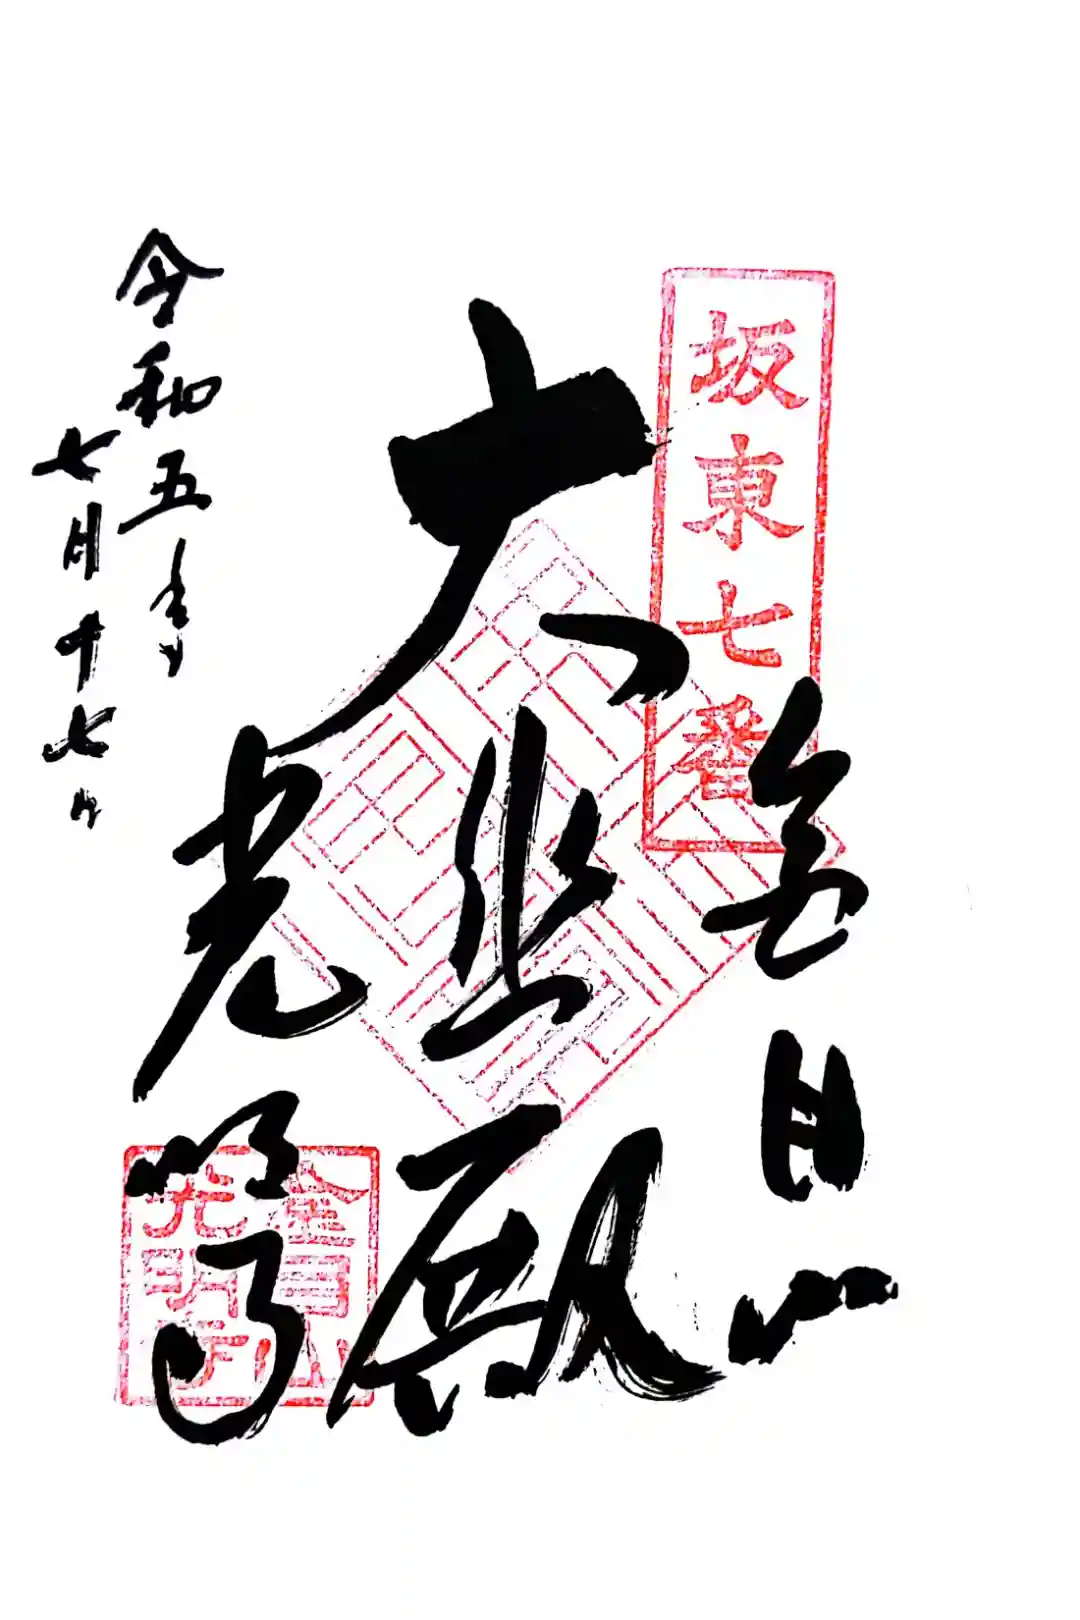 坂東七番
金目山
大悲殿
光明寺
金目山
光明寺
令和五年
七月十七日